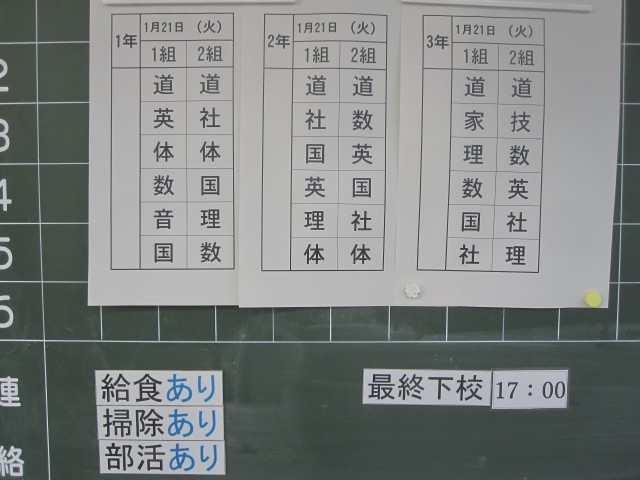 1年 1月21日 (火)
1組 2組
道 道
英 社
体 体
数 国
音 理
国 数
2年 1月21日 (火)
1組 2組
道 道
社 数
国 英
英 国
理 社
体 体
3年 1月21日 (火)
1組 2組
道 道
家 技
理 数
数 英
国 社
社 理
2
3
4
5
6
連
絡
給食あり
掃除あり
部活あり
最終下校 17:00